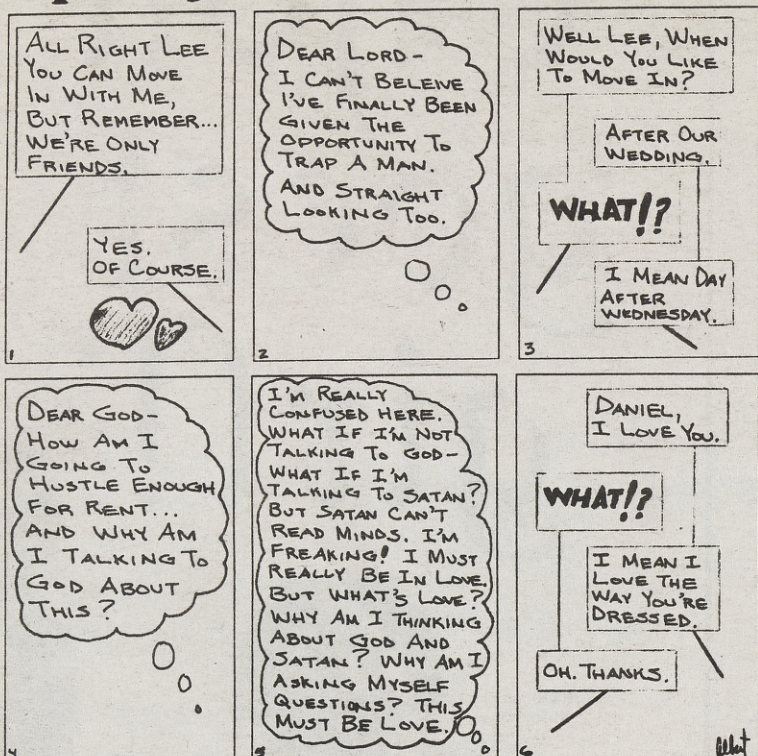 ALL RIGHT LEE
YOU CAN MOVE
IN WITH ME,
BUT REMEMBER...
WE'RE ONLY
FRIENDS.
YES.
OF COURSE.
1
DEAR LORD-
I CAN'T BELEIVE
I'VE FINALLY BEEN
GIVEN THE
OPPORTUNITY TO
TRAP A MAN.
AND STRAIGHT
LOOKING TOO.
2
WELL LEE, WHEN
WOULD YOU LIKE
TO MOVE IN?
AFTER OUR
WEDDING.
WHAT!?
I MEAN DAY
AFTER
WEDNESDAY.
3
DEAR GOD-
HOW AM I
GOING TO
HUSTLE ENOUGH
FOR RENT...
AND WHY AM
I TALKING TO
GOD ABOUT
THIS?
4
I'M REALLY
CONFUSED HERE.
WHAT IF I'M NOT
TALKING TO GOD-
WHAT IF I'M
TALKING TO SATAN?
BUT SATAN CAN'T
READ MINDS. I'M
FREAKING! I MUST
REALLY BE IN LOVE.
BUT WHAT'S LOVE?
WHY AM I THINKING
ABOUT GOD AND
SATAN? WHY AM I
ASKING MYSELF
QUESTIONS? THIS
MUST BE LOVE.
5
DANIEL,
I LOVE YOU.
WHAT!?
I MEAN I
LOVE THE
WAY YOU'RE
DRESSED.
OH. THANKS.
6